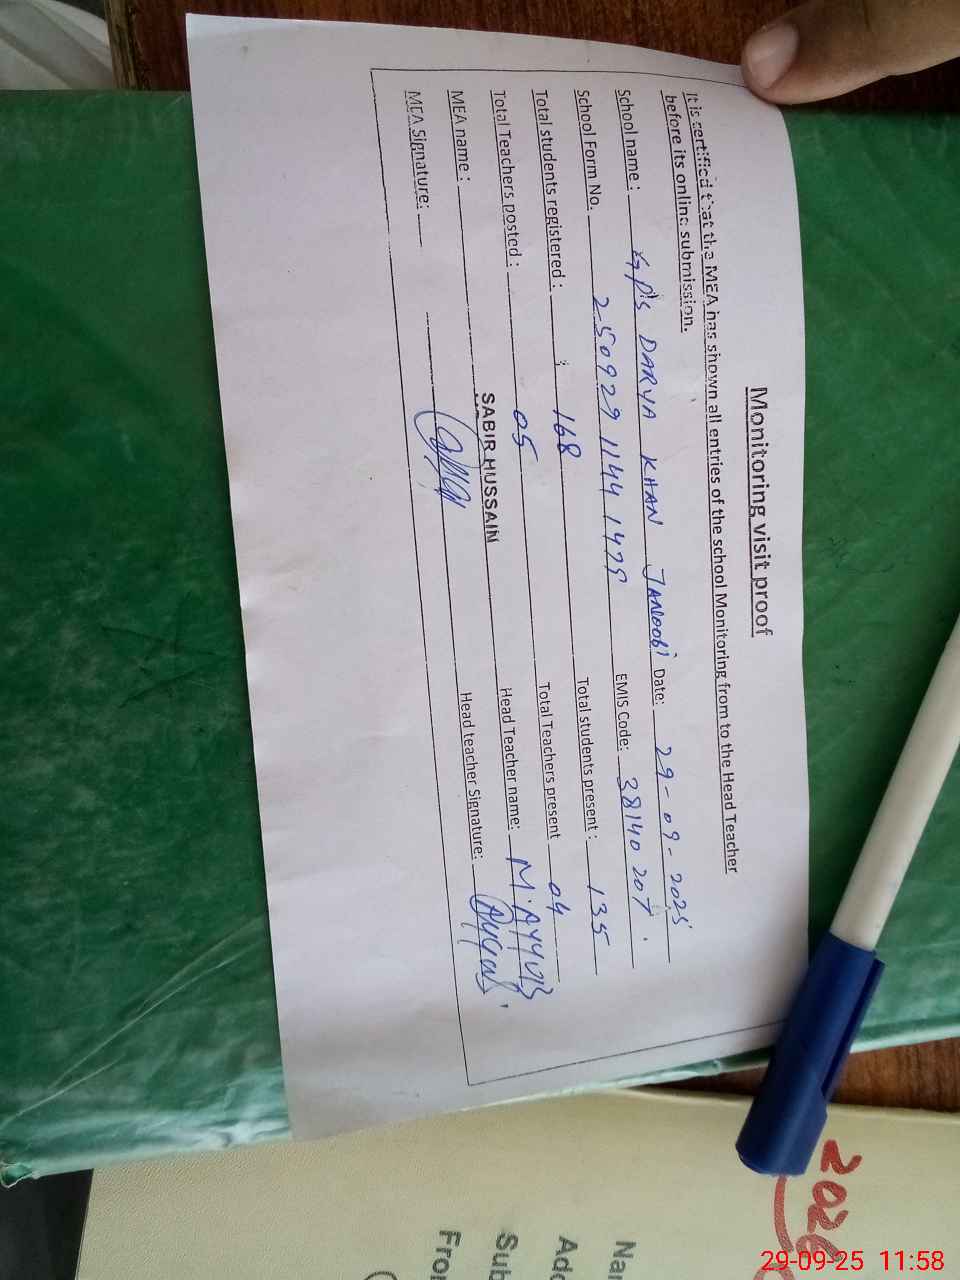 Monitoring visit proof
It is certified that the MEA has shown all entries of the school Monitoring from to the Head Teacher
before its online submission.
School name : G.P.S DARYA KHAN JANOOBI Date: 29-09-2025
School Form No. 250929 1144 1475 EMIS Code: 38140207
Total students registered : 168 Total students present : 135
Total Teachers posted : 05 Total Teachers present 04
MEA name : SABIR HUSSAIN Head Teacher name: M.AYYUB
MEA Signature: Head teacher Signature:
2026
Sub
29-09-25 11:58